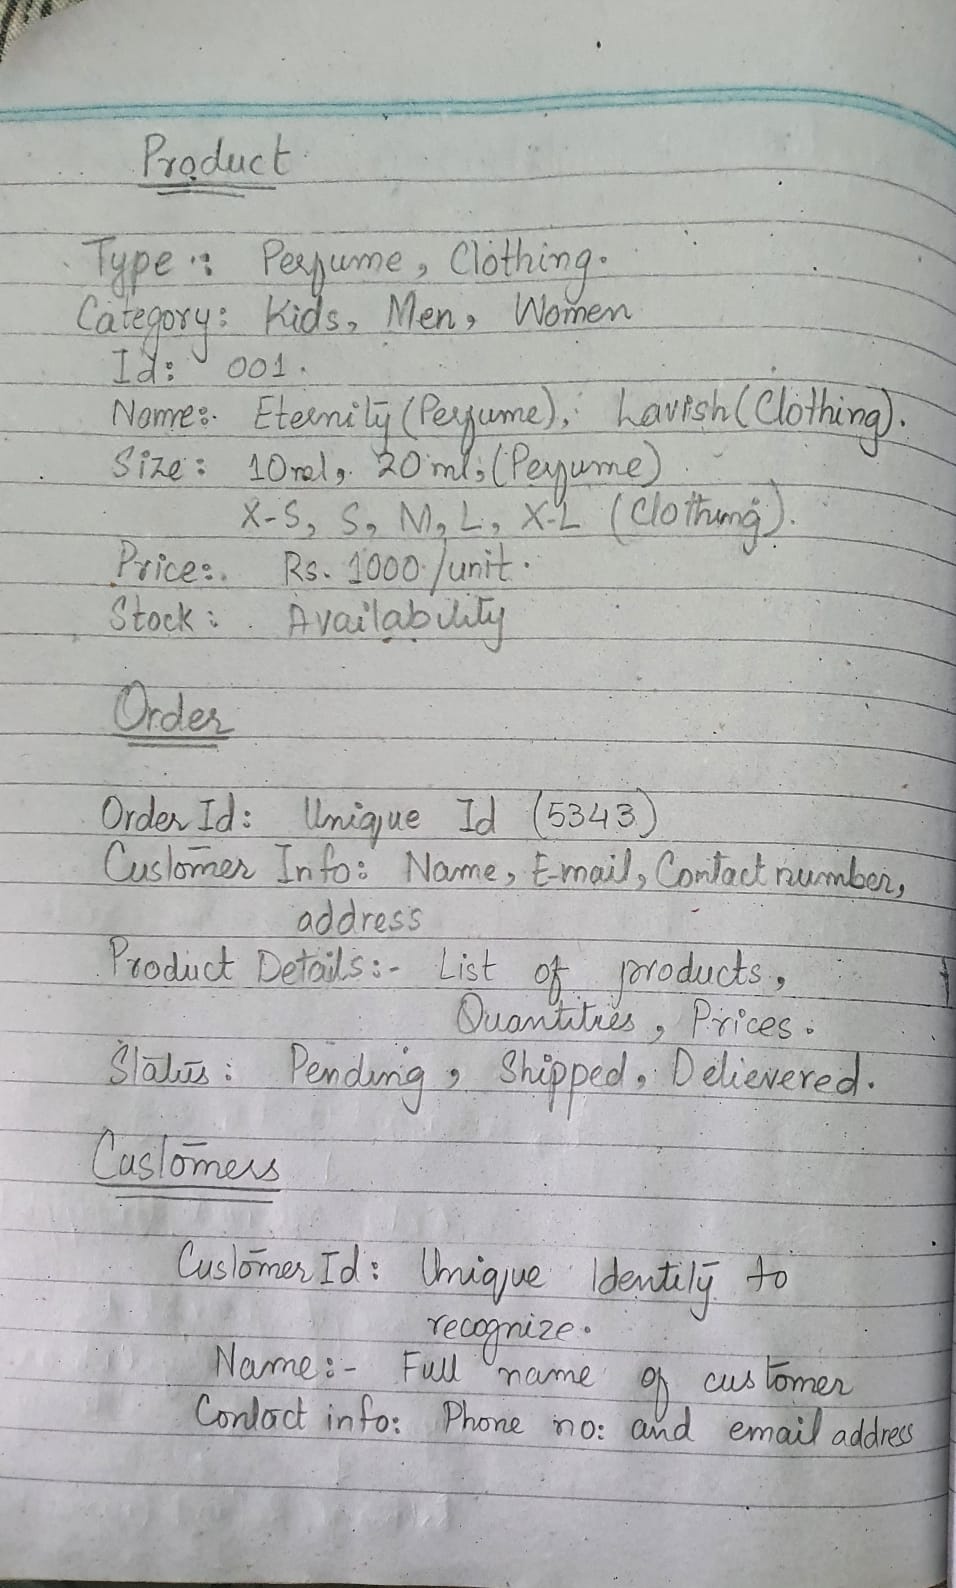 Product
Type :: Perfume, Clothing.
Category: Kids, Men, Women
Id: 001.
Name:. Eternity (Perfume), Lavish (Clothing).
Size: 10ml, 20 ml, (Perfume)
X-S, S, M, L, X-L (Clothing).
Price:. Rs. 1000/unit.
Stock: Availability
Order
Order Id: Unique Id (5343)
Customer Info: Name, E-mail, Contact number,
address
Product Details:- List of products,
Quantities, Prices.
Status: Pending, Shipped, Delievered.
Customers
Customer Id: Unique Identity to
recognize.
Name:- Full name of customer
Contact info: Phone no: and email address